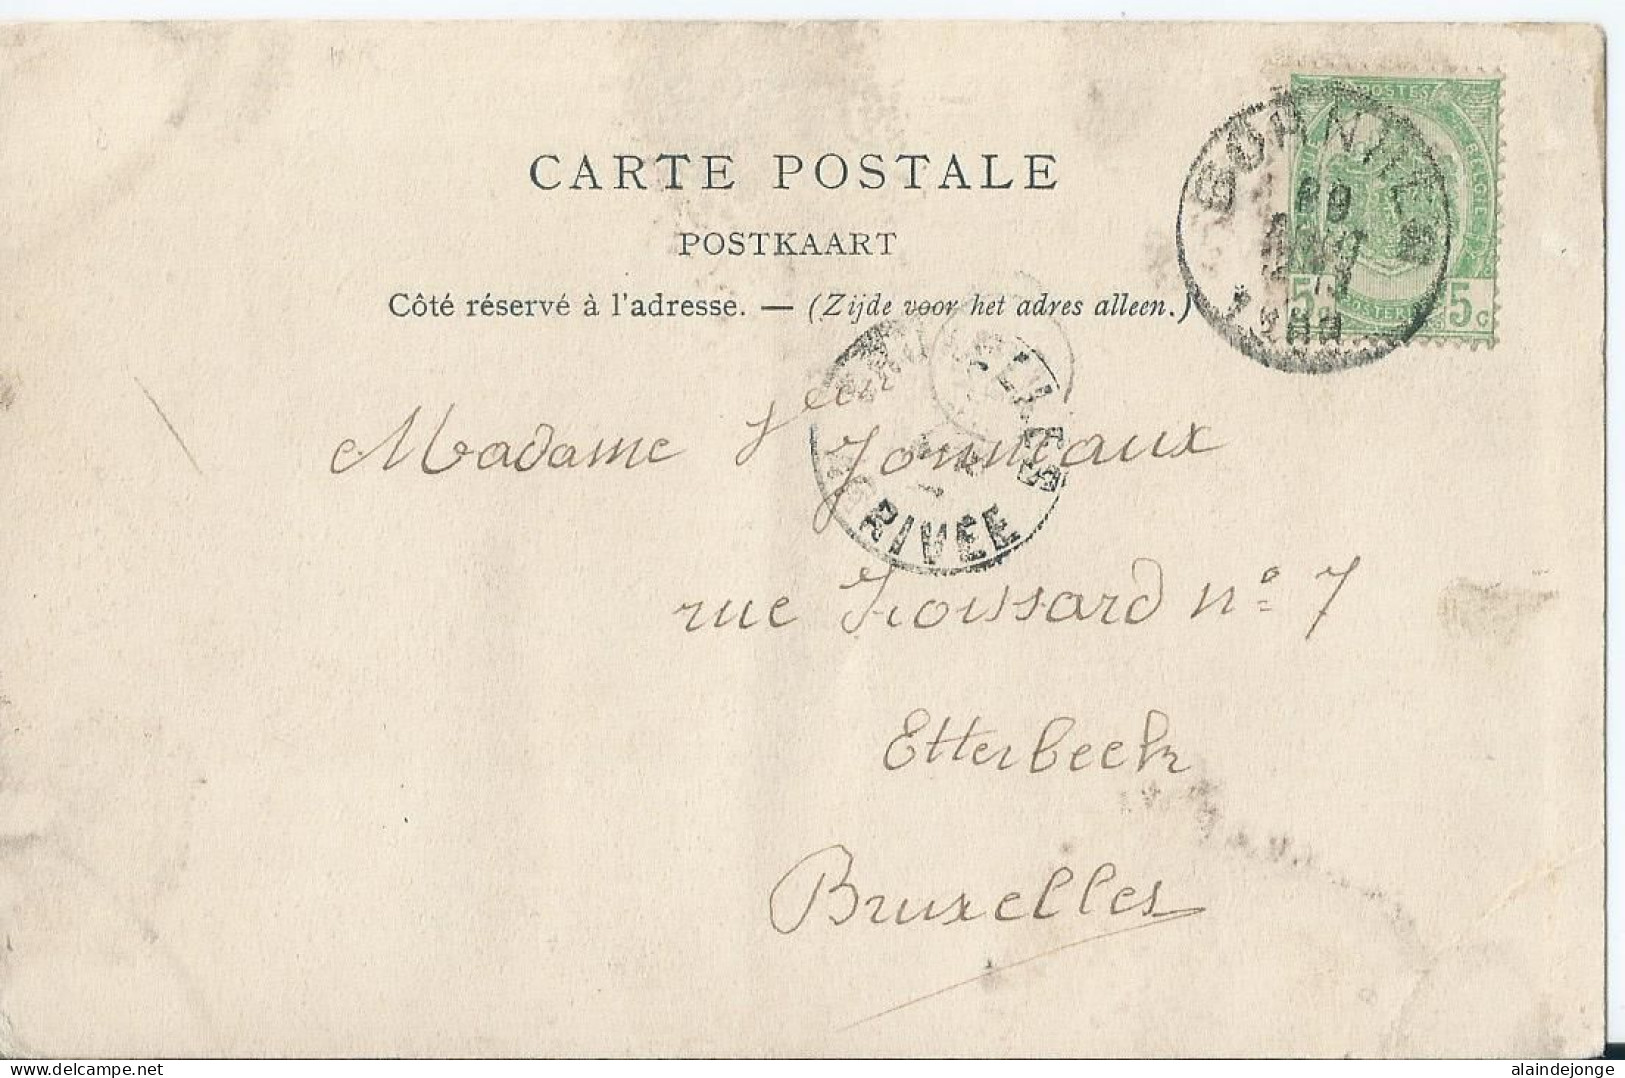 CARTE POSTALE
POSTKAART
Côté réservé à l'adresse. — (Zijde voor het adres alleen.)
POSTES
BELGIQUE
5 POSTERIJEN 5 c
RIVÉE
Madame Jonniaux
rue Froissard nº 7
Etterbeek
Bruxelles
delcampe.net
alaindejonge